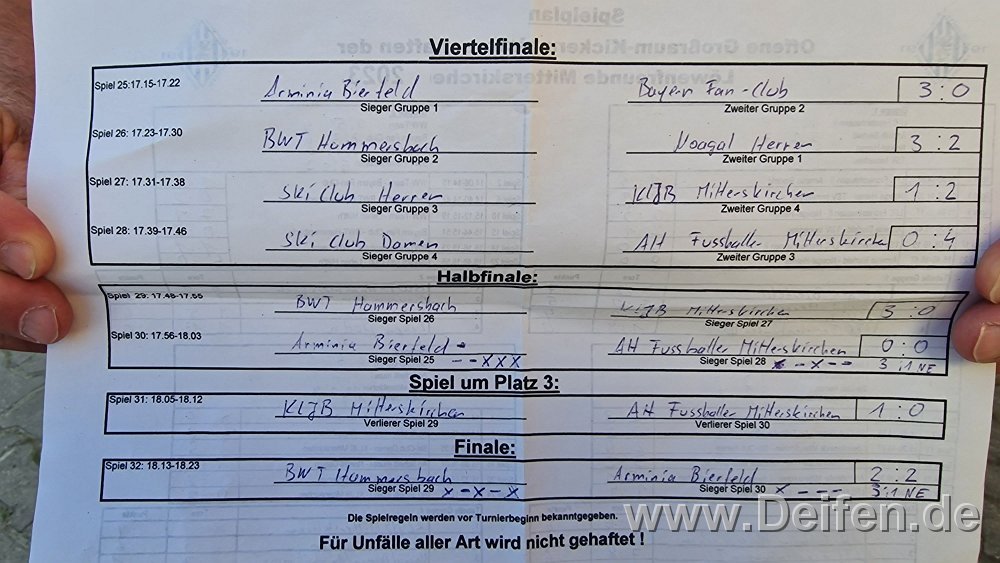 Viertelfinale:
Spiel 25:17.15-17.22 Arminia Bierfeld Bayern Fan-Club 3:0
Sieger Gruppe 1 Zweiter Gruppe 2
Spiel 26: 17.23-17.30 BWT Hammersbach Noagal Herren 3:2
Sieger Gruppe 2 Zweiter Gruppe 1
Spiel 27: 17.31-17.38 Ski Club Herren KLJB Mitterskirchen 1:2
Sieger Gruppe 3 Zweiter Gruppe 4
Spiel 28: 17.39-17.46 Ski Club Damen AH Fussballer Mitterskirchen 0:4
Sieger Gruppe 4 Zweiter Gruppe 3
Halbfinale:
Spiel 29: 17.48-17.55 BWT Hammersbach KLJB Mitterskirchen 3:0
Sieger Spiel 26 Sieger Spiel 27
Spiel 30: 17.56-18.03 Arminia Bierfeld - AH Fussballer Mitterskirchen 0:0
Sieger Spiel 25 --xxx Sieger Spiel 28 x-x-- 3:1 NE
Spiel um Platz 3:
Spiel 31: 18.05-18.12 KLJB Mitterskirchen AH Fussballer Mitterskirchen 1:0
Verlierer Spiel 29 Verlierer Spiel 30
Finale:
Spiel 32: 18.13-18.23 BWT Hammersbach Arminia Bierfeld 2:2
Sieger Spiel 29 x-x-x Sieger Spiel 30 x---- 3:1 NE
Die Spielregeln werden vor Turnierbeginn bekanntgegeben.
www.Deifen.de
Für Unfälle aller Art wird nicht gehaftet !